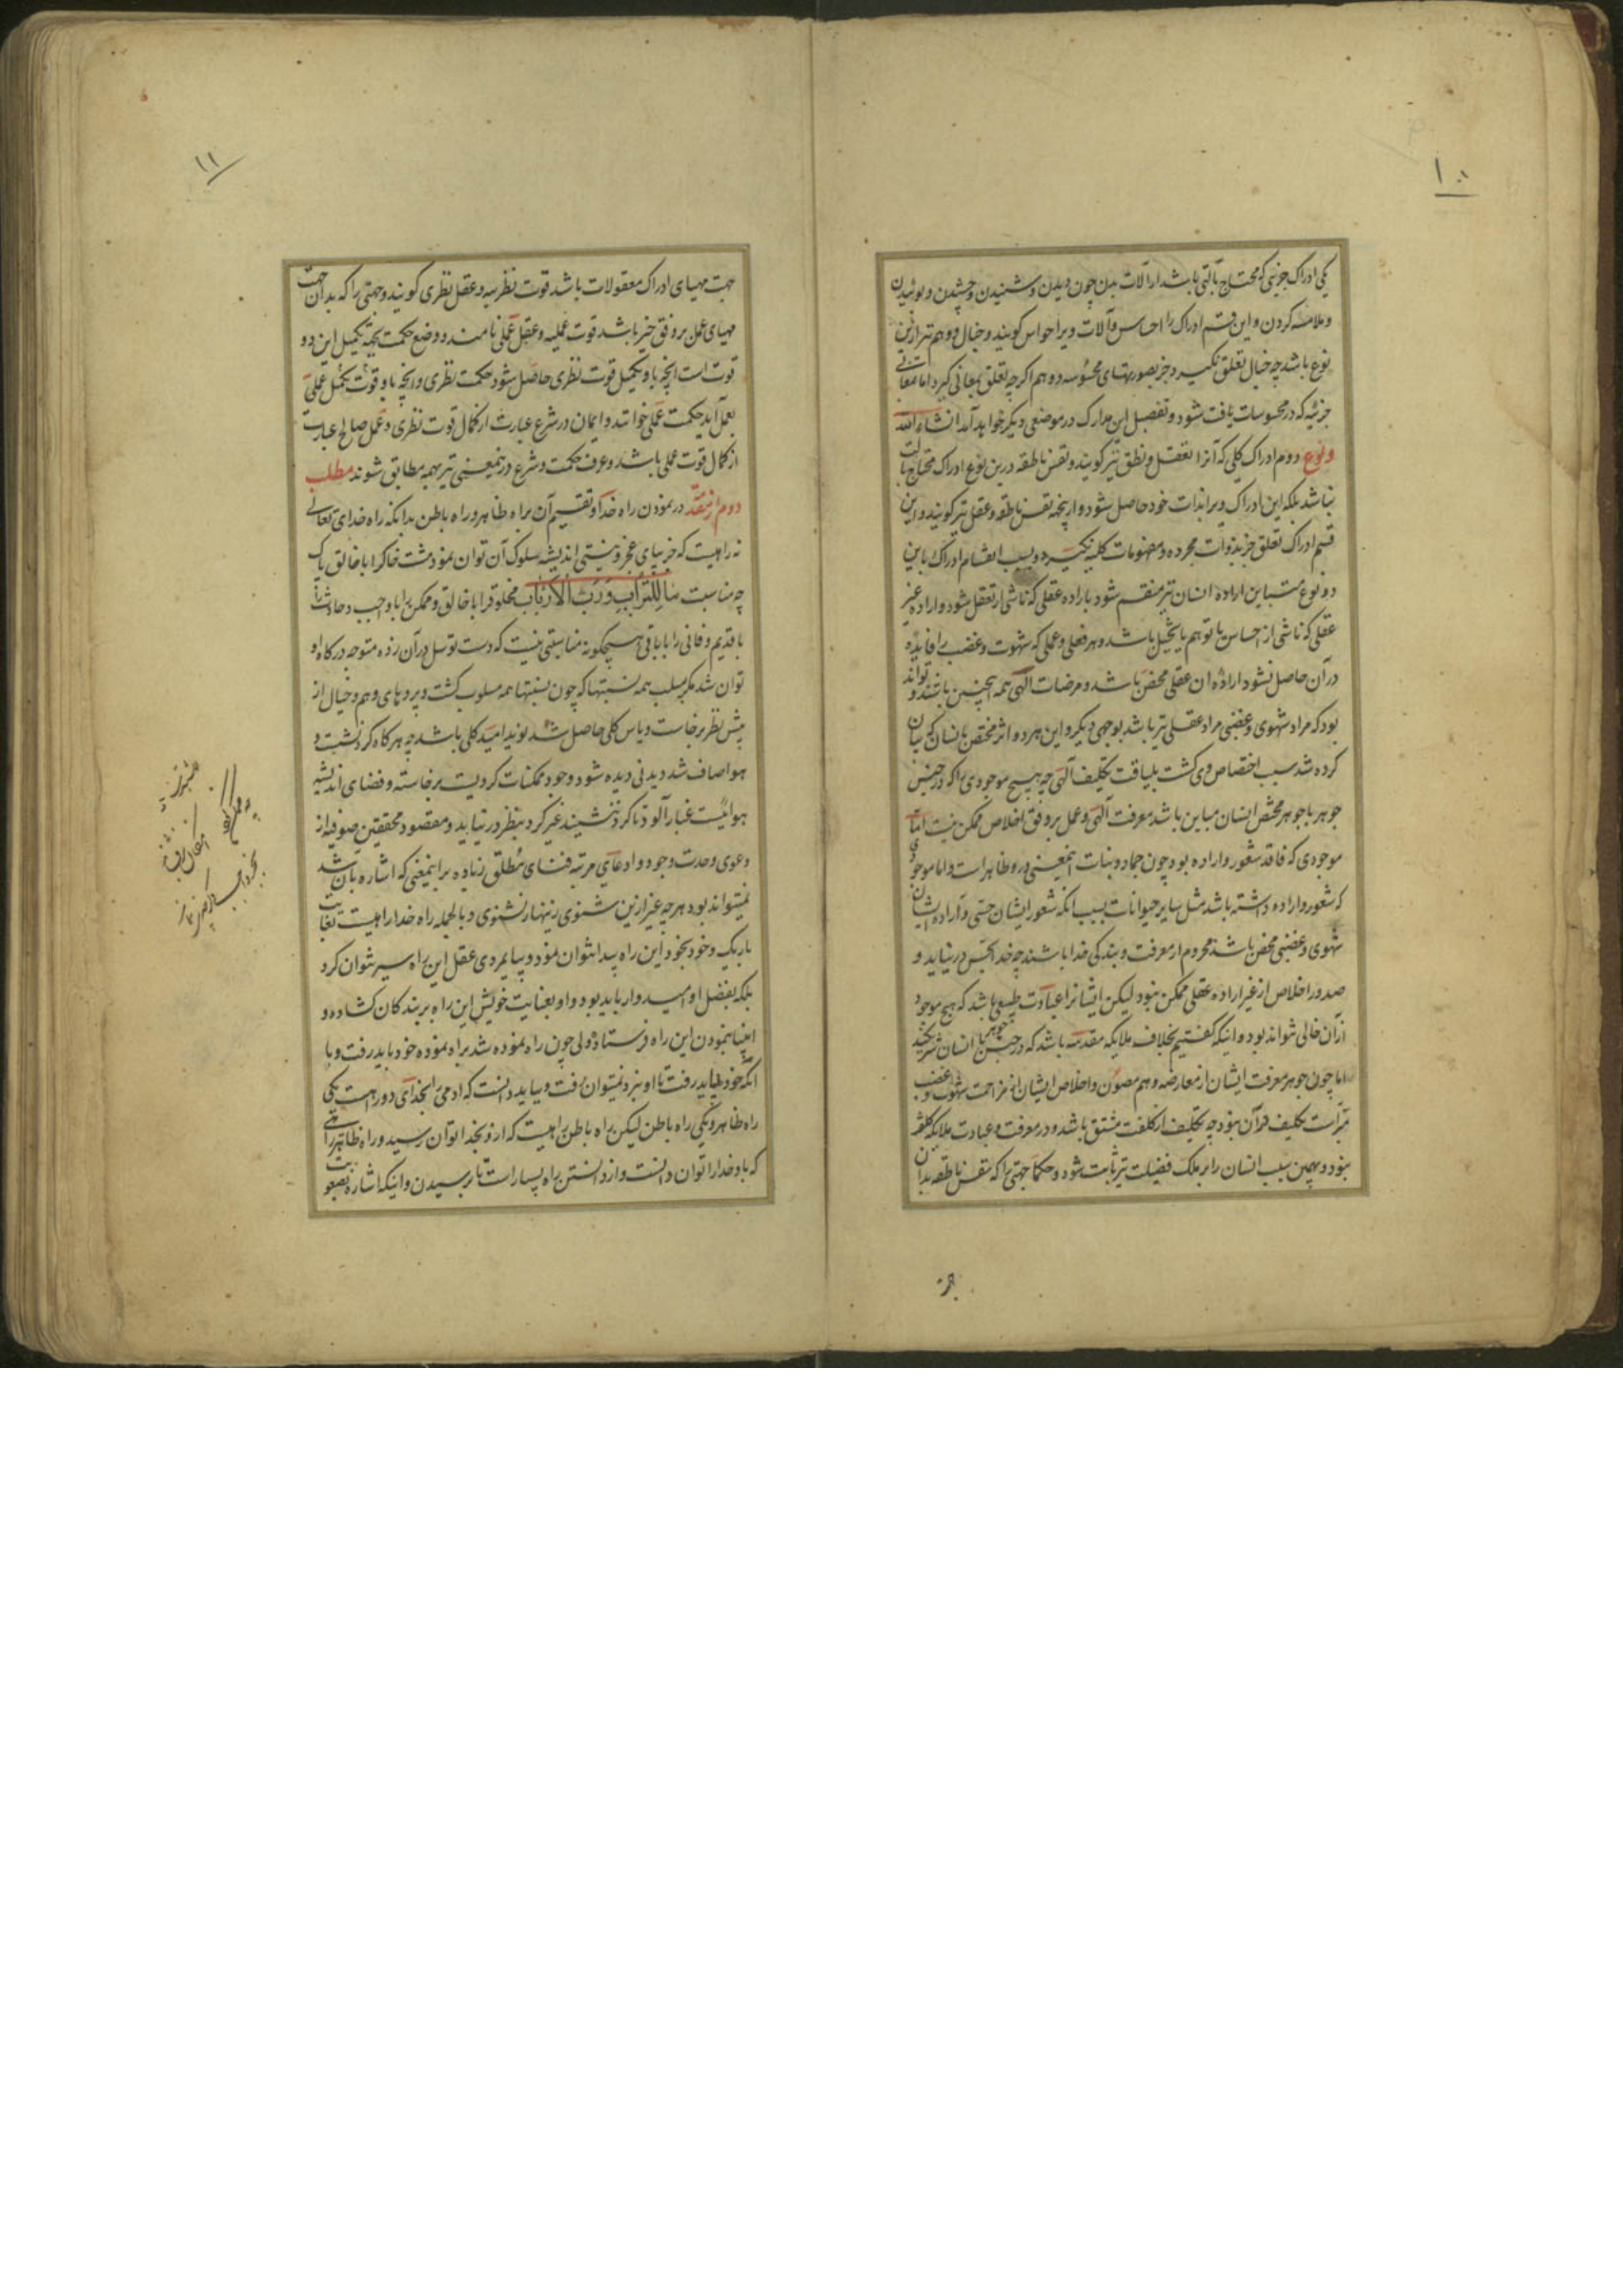 ۱۰
یکی ادراک جزئی که محتاج بآلتی باشد از آلات بدن چون دیدن و شنیدن و چشیدن و بوئیدن
و ملامسه کردن و این قسم ادراک را احساس و آلات ویرا حواس گویند و خیال و وهم نیز ازین
نوع باشد چه خیال تعلق نگیرد جز بصورتهای محسوسه و وهم اگر چه تعلق بمعانی گیرد اما معانی
جزئیه که در محسوسات یافت شود و تفصیل این مدارک در موضعی دیگر خواهد آمد انشاء الله
و نوع دوم ادراک کلی که آنرا تعقل و نطق نیز گویند و نفس ناطقه درین نوع ادراک محتاج بآلت
نباشد بلکه این ادراک ویرا بذات خود حاصل شود و ازینجهة نفس ناطقه و عقل نیز گویند و این
قسم ادراک تعلق جز بذوات مجرده و مفهومات کلیه نگیرد و بسبب انقسام ادراک باین
دو نوع متباین اراده انسان نیز منقسم شود باراده عقلی که ناشی از تعقل شود و اراده غیر
عقلی که ناشی از احساس یا توهم یا تخیل باشد و هر فعلی و عملی که شهوت و غضب را فایده
در آن حاصل نشود اراده آن عقلی محض باشد و مرضات الهی همه اینچنین باشند و تواند
بود که مراد شهوی و غضبی مراد عقلی نیز باشد بوجهی دیگر و این هر دو اثر مختص بانسان که بیان
کرده شد سبب اختصاص وی گشت بلیاقت تکلیف الهی چه هیچ موجودی را که در جنس
جوهر با جوهر مختص انسان مباین باشد معرفت الهی و عمل بر وفق اخلاص ممکن نیست اما
موجودی که فاقد شعور و اراده بود چون جماد و نبات اینمعنی درو ظاهر است و اما موجودی
که شعور و اراده داشته باشد مثل سایر حیوانات بسبب آنکه شعور ایشان حسی و اراده ایشان
شهوی و غضبی محض باشد محروم از معرفت و بندگی خدا باشند چه خدا بحس در نیاید و
صدور اخلاص از غیر اراده عقلی ممکن نبود لیکن ایشانرا عبادت طبیعی باشد که هیچ موجود
از آن خالی نتواند بود و اینکه گفتیم بخلاف ملایکه مقدسه باشد که در جنس جوهر با انسان شریکند
اما چون جوهر معرفت ایشان از معارضه وهم مصون و اخلاص ایشان از مزاحمت شهوت و غضب
مبراست تکلیف در آن نبود چه تکلیف از کلفت مشتق باشد و در معرفت و عبادت ملایکه کلفت
نبود و بهمین سبب انسان را بر ملک فضیلت نیز ثابت شود و حکما جهتی را که نفس ناطقه بدان
۱۱
جهت مهیای ادراک معقولات باشد قوت نظریه و عقل نظری گویند و جهتی را که بدان جهت
مهیای عمل بر وفق خیر باشد قوت عملیه و عقل عملی نامند و وضع حکمت بجهة تکمیل این دو
قوت است آنچه باو تکمیل قوت نظری حاصل شود حکمت نظری و آنچه باو قوت تکمیل عملی
بعمل آید حکمت عملی خوانند و ایمان در شرع عبارت از کمال قوت نظری و عمل صالح عبارت
از کمال قوت عملی باشد و عرف حکمت و شرع درینمعنی نیز بهمه مطابق شوند مطلب
دوم از مقدمه در نمودن راه خدا و تقسیم آن براه ظاهر و راه باطن بدانکه راه خدای تعالی
نه راهیست که جز بپای عجز و نیستی اندیشه سلوک آن توان نمود مشت خاکرا با خالق پاک
چه مناسبت مَا لِلتُّرَابِ وَرَبِّ الْأَرْبَابِ مخلوقرا با خالق و ممکن را با واجب و حادث را
با قدیم و فانی را با باقی هیچگونه مناسبتی نیست که دست توسل در آن زده متوجه درگاه او
توان شد مگر سلب همه نسبتها که چون نسبتها همه مسلوب گشت و پردهای وهم و خیال از
پیش نظر برخاست و یاس کلی حاصل شد نوید امید کلی باشد چه هرگاه گرد نشست و
هوا صاف شد دیدنی دیده شود وجود ممکنات گردیست برخاسته و فضای اندیشه
هوائیست غبارآلود تا گرد ننشیند غیر گرد بنظر در نیاید و مقصود محققین صوفیه از
دعوی وحدت وجود و ادعای مرتبه فنای مطلق زیاده بر اینمعنی که اشاره بان شد
نمیتواند بود هر چه غیر ازین شنوی زینهار نشنوی و بالجمله راه خدا راهیست بغایت
باریک و خود بخود این راه پیدا نتوان نمود و بپایمردی عقل این راه سیر نتوان کرد
بلکه بفضل او امیدوار باید بود و او بعنایت خویش این راه بر بندگان گشاده و
انبیا بنمودن این راه فرستاده ولی چون راه نموده شد براه نموده خود باید رفت و با
آنکه خود میباید رفت تا او نبرد نمیتوان رفت و بباید دانست که آدمی را بخدای دو راهست یکی
راه ظاهر و یکی راه باطن لیکن راه باطن راهیست که ازو بخدا توان رسید و راه ظاهر راهی
که باو خدا را توان دانست و از دانستن راه بسیار است تا رسیدن و اینکه اشاره بصعوبت